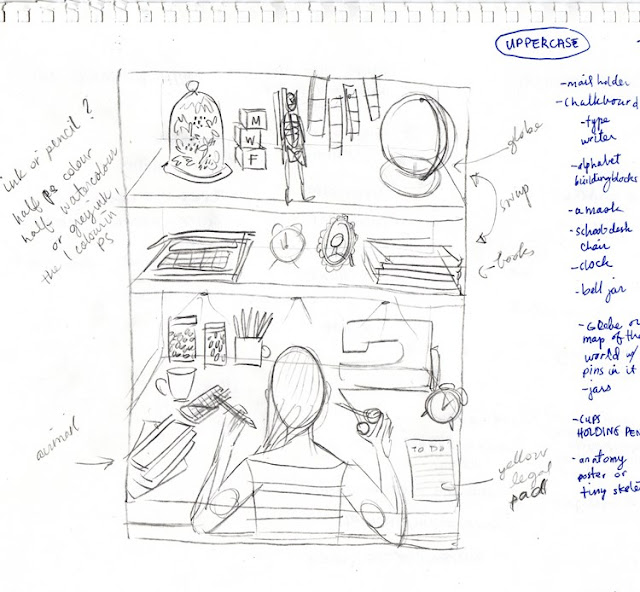 UPPERCASE
-mail holder
-chalkboard
-type
writer
-alphabet
building blocks
-a mask
-school desk
chair
-clock
-bell jar
-GLOBE or
map of the
world w/
pins in it
-jars
-CUPS
HOLDING PEN
-anatomy
poster or
tiny skele
ink or pencil?
half colour
half watercolour
or grey ink,
the / colour in
PS
M
W
F
globe
swap
books
TO DO
yellow
legal
pad
airmail